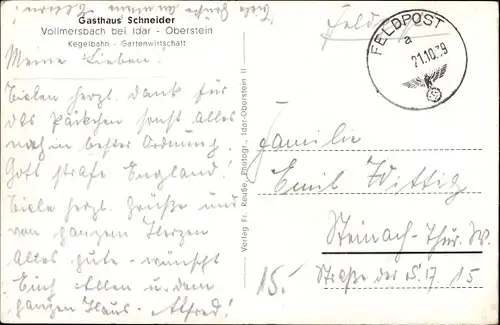 Gasthaus Schneider
Vollmersbach bei Idar - Oberstein
Kegelbahn - Gartenwirtschaft
Meine Lieben!
Vielen herzl. Dank für
das Päckchen sonst Alles
noch in bester Ordnung.
Gott strafe England!
Viele herzl. Grüße und
von ganzem Herzen
Alles gute - wünscht
Euch Allen u. dem
ganzen Haus - Alfred!
Verlag Fr. Reuße, Photogr., Idar-Oberstein II
FELDPOST
a
21.10.39
Familie
Emil Wittig
Steinach-Thür. W.
Straße der S. 17 15
15.